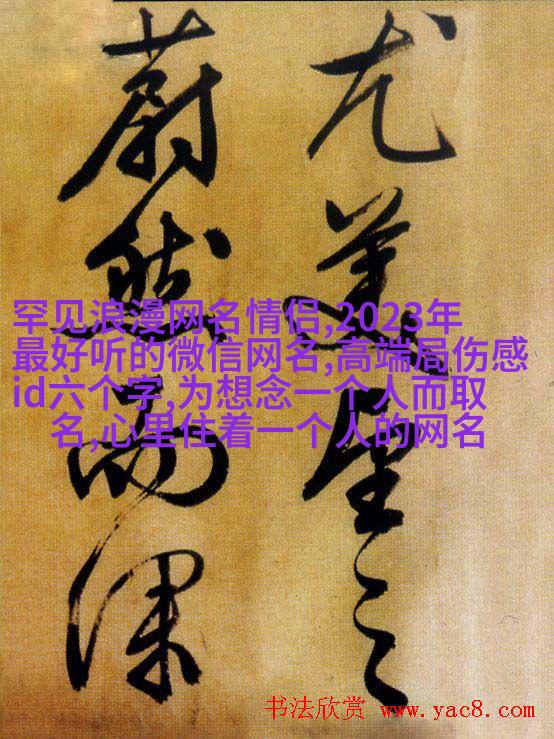 尤美望之
蔚然而深
罕见浪漫网名情侣,2023年
最好听的微信网名,高端局伤感
id六个字,为想念一个人而取
名,心里住着一个人的网名
书法欣赏 www.yac8.com